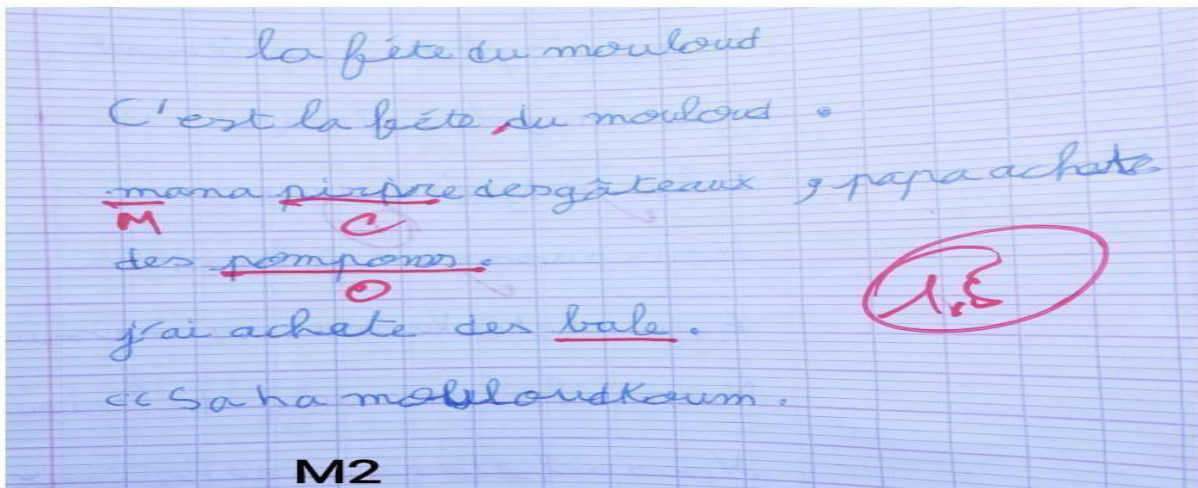 la fête du mouloud
C'est la fête du mouloud.
mama pirpre des gâteaux, papa achate
M C
des pompons.
O
1.5
j'ai achete des bale.
<<Saha mouloudkoum.
M2